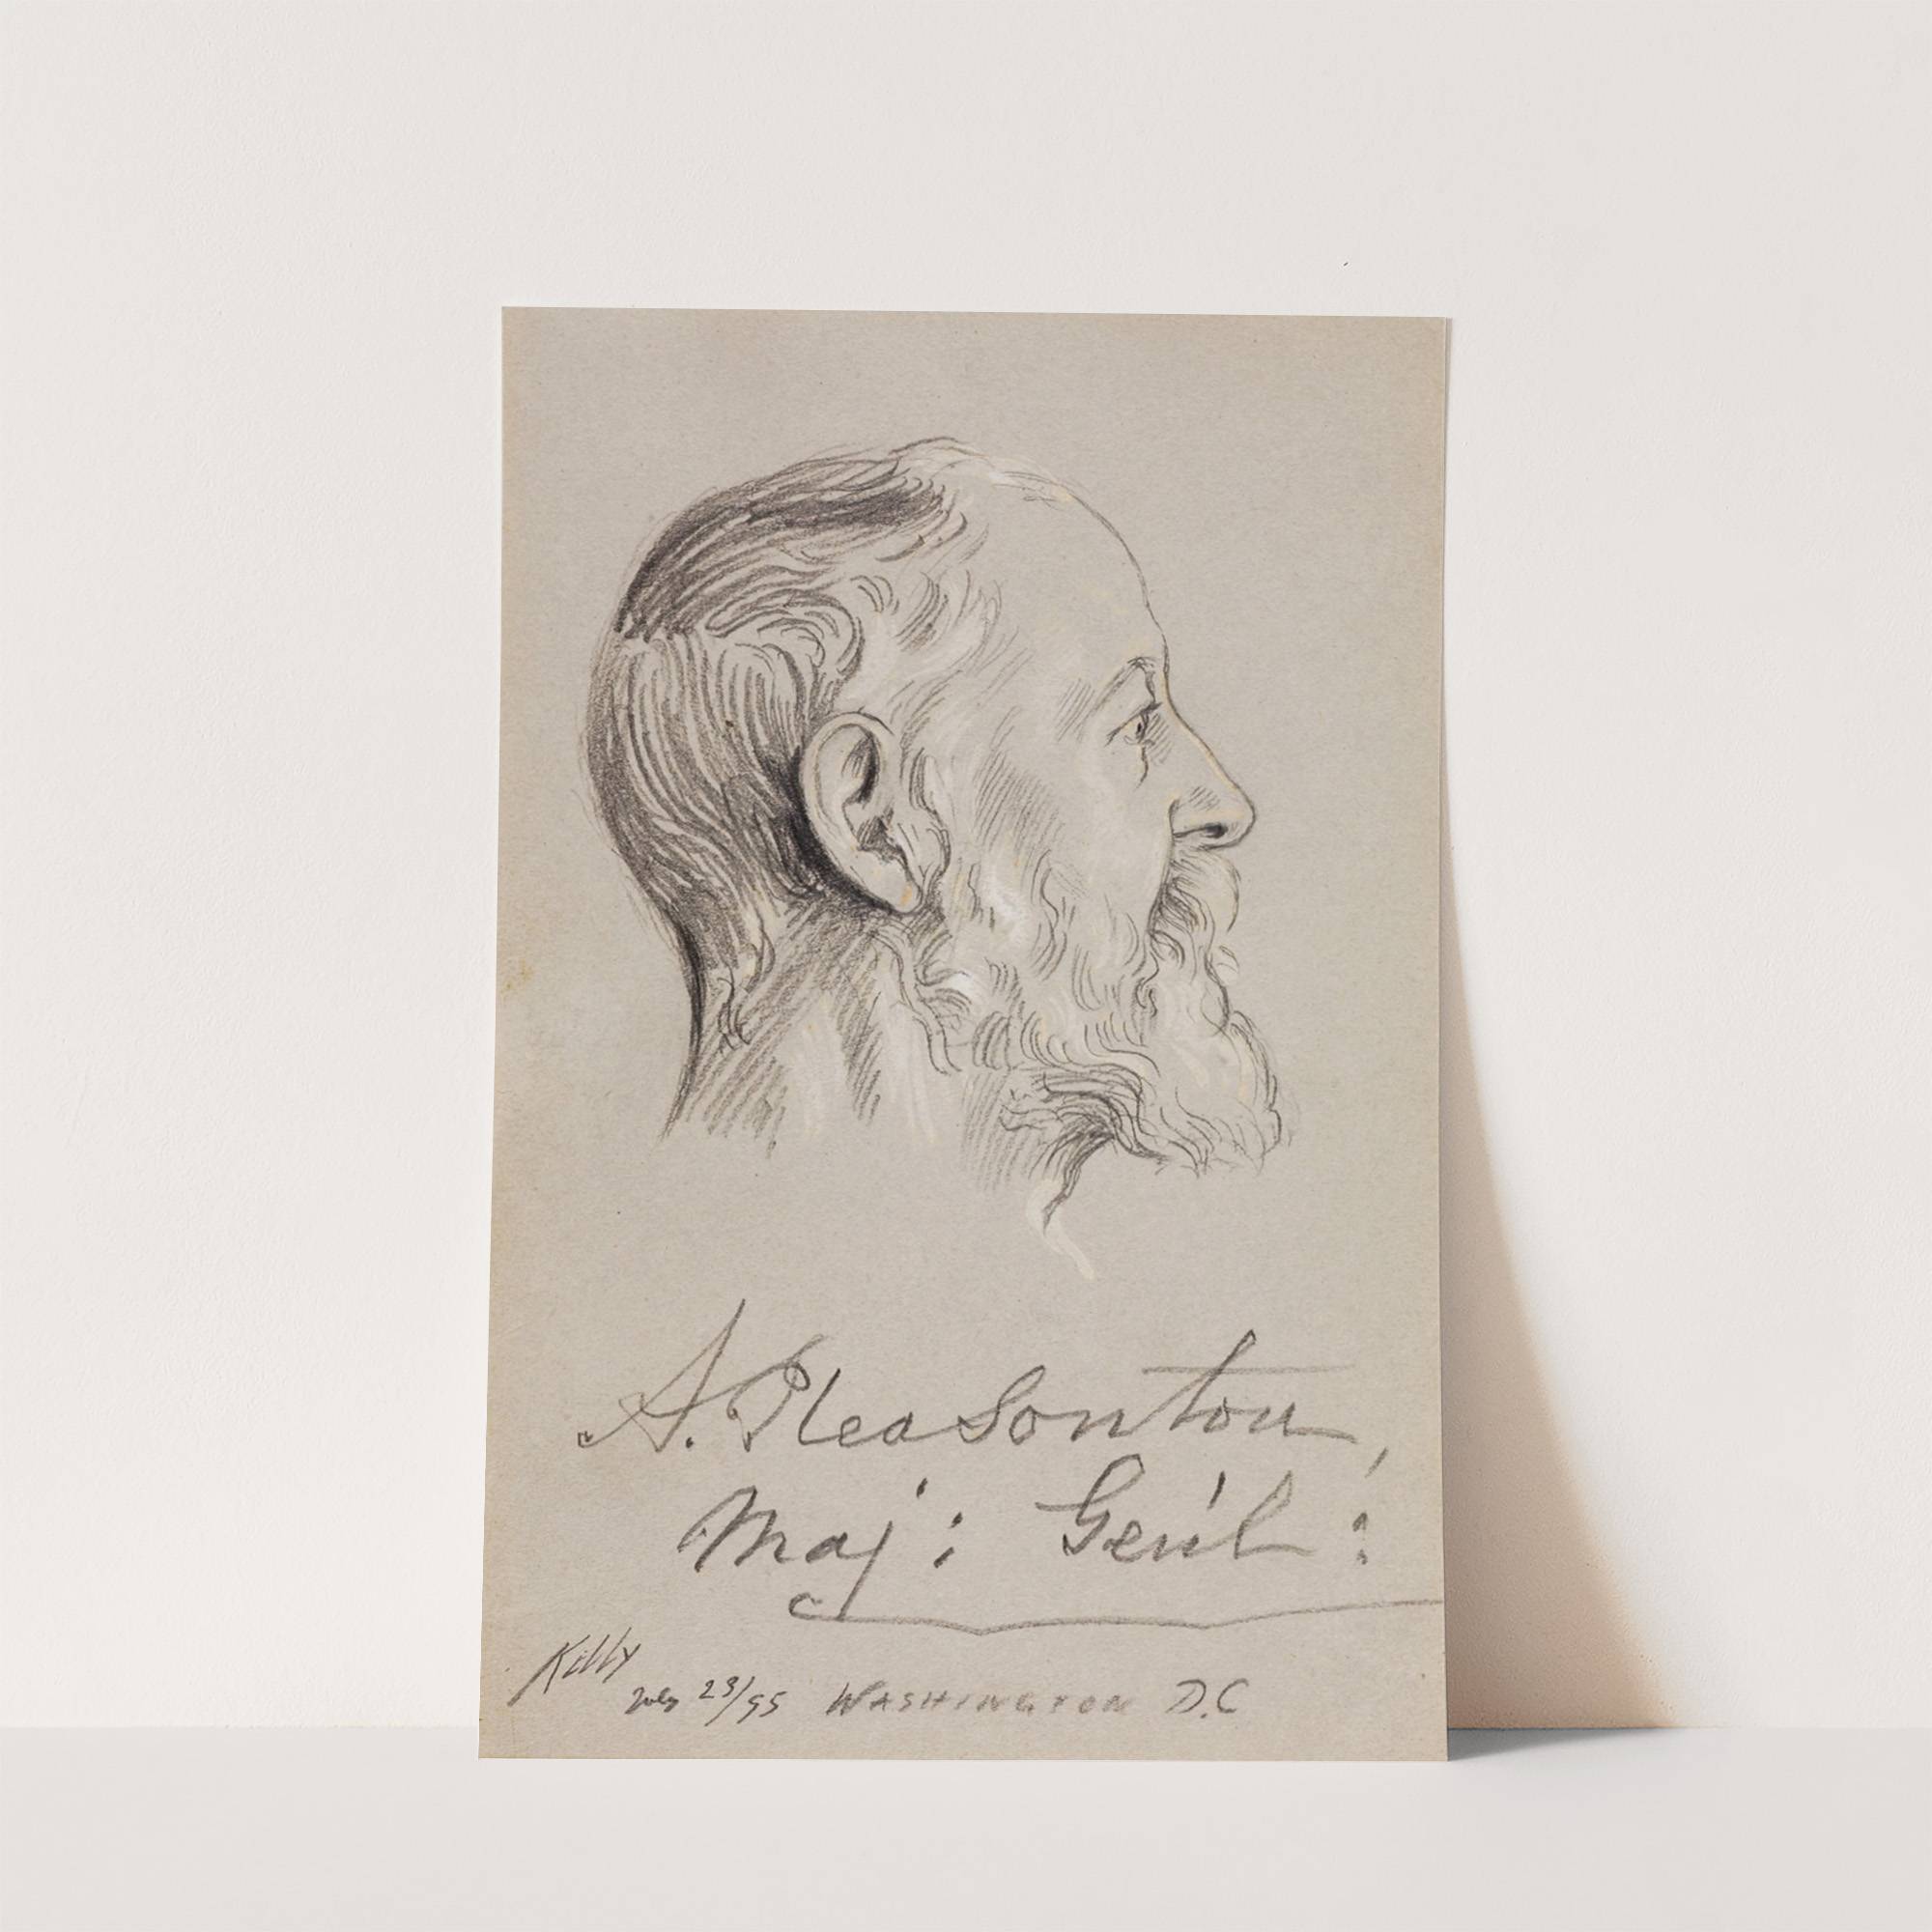 A. Pleasonton,
Maj: Gen'l:
Kelly
July 23/95 WASHINGTON D.C